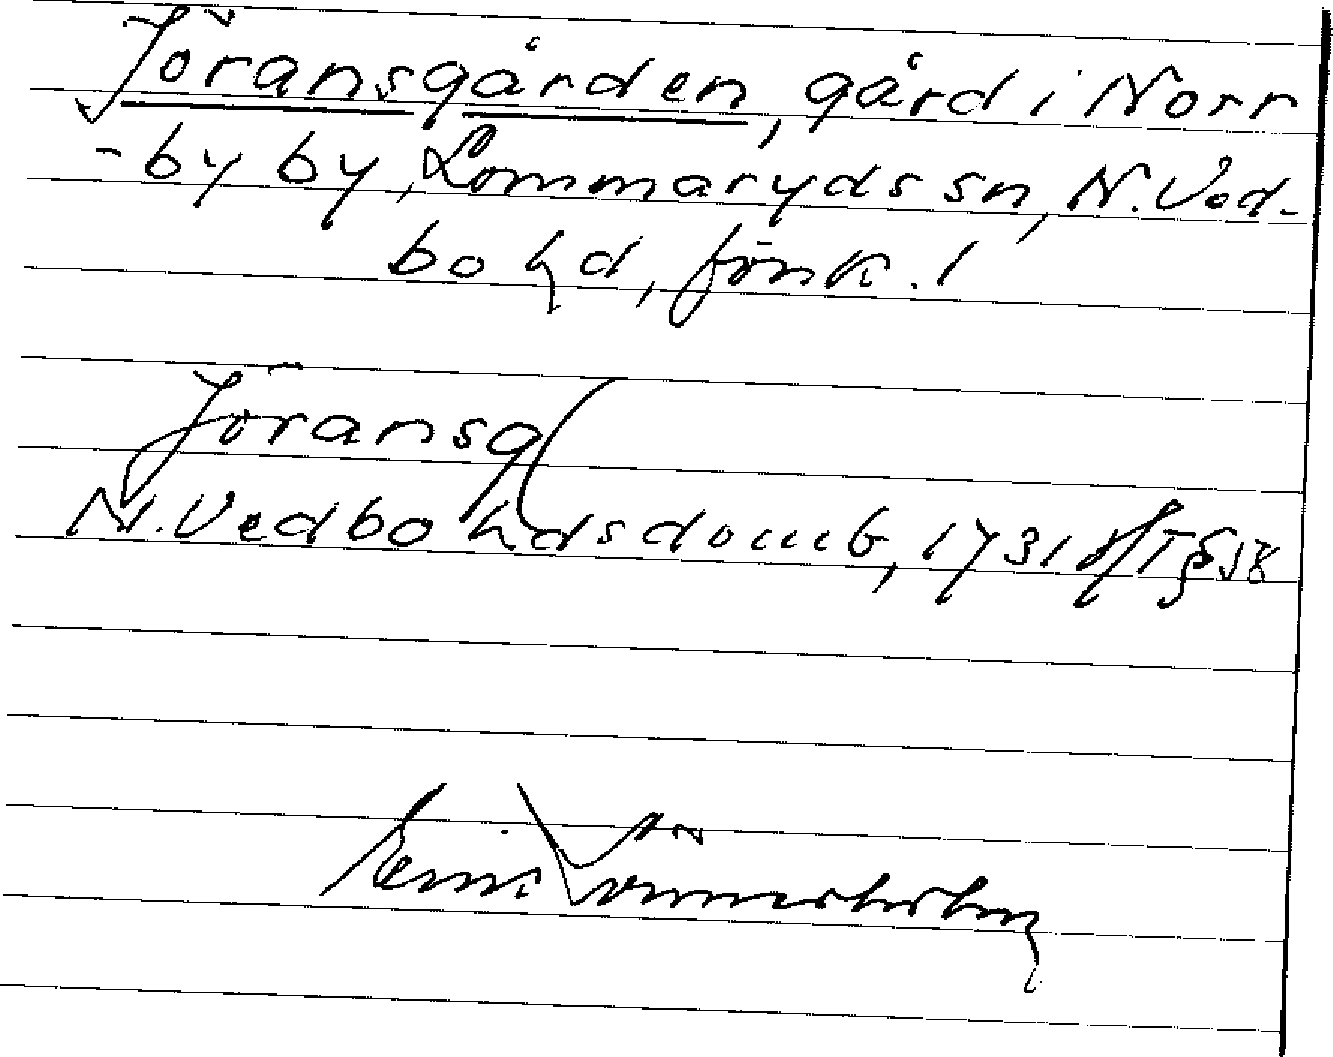 Jöransgården, gård i Norr
-by by, Lommaryds sn, N. Ved-
bo hd, Jönk. l
Jöransg(
N. Vedbo hdsdomb, 1731 § 58